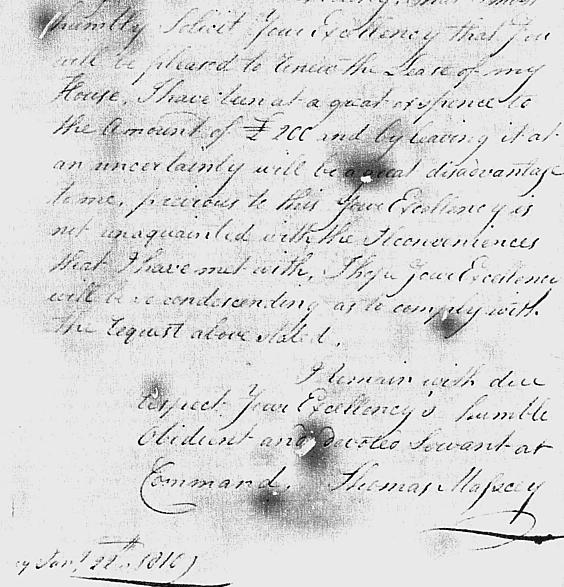 humbly Solicit Your Excellency that You
will be pleased to renew the Lease of my
House, I have been at a great expence to
the Amount of £200 and by leaving it at
an uncertainty will be a great disadvantage
to me, previous to this Your Excellency is
not unaquainted with the Inconveniences
that I have met with, I hope Your Excellency
will be so condescending as to comply with
the request above stated.
I remain with due
respect Your Excellency's humble
Obident and devoted Servant at
Command. Thomas Massey
Jany 22th 1810